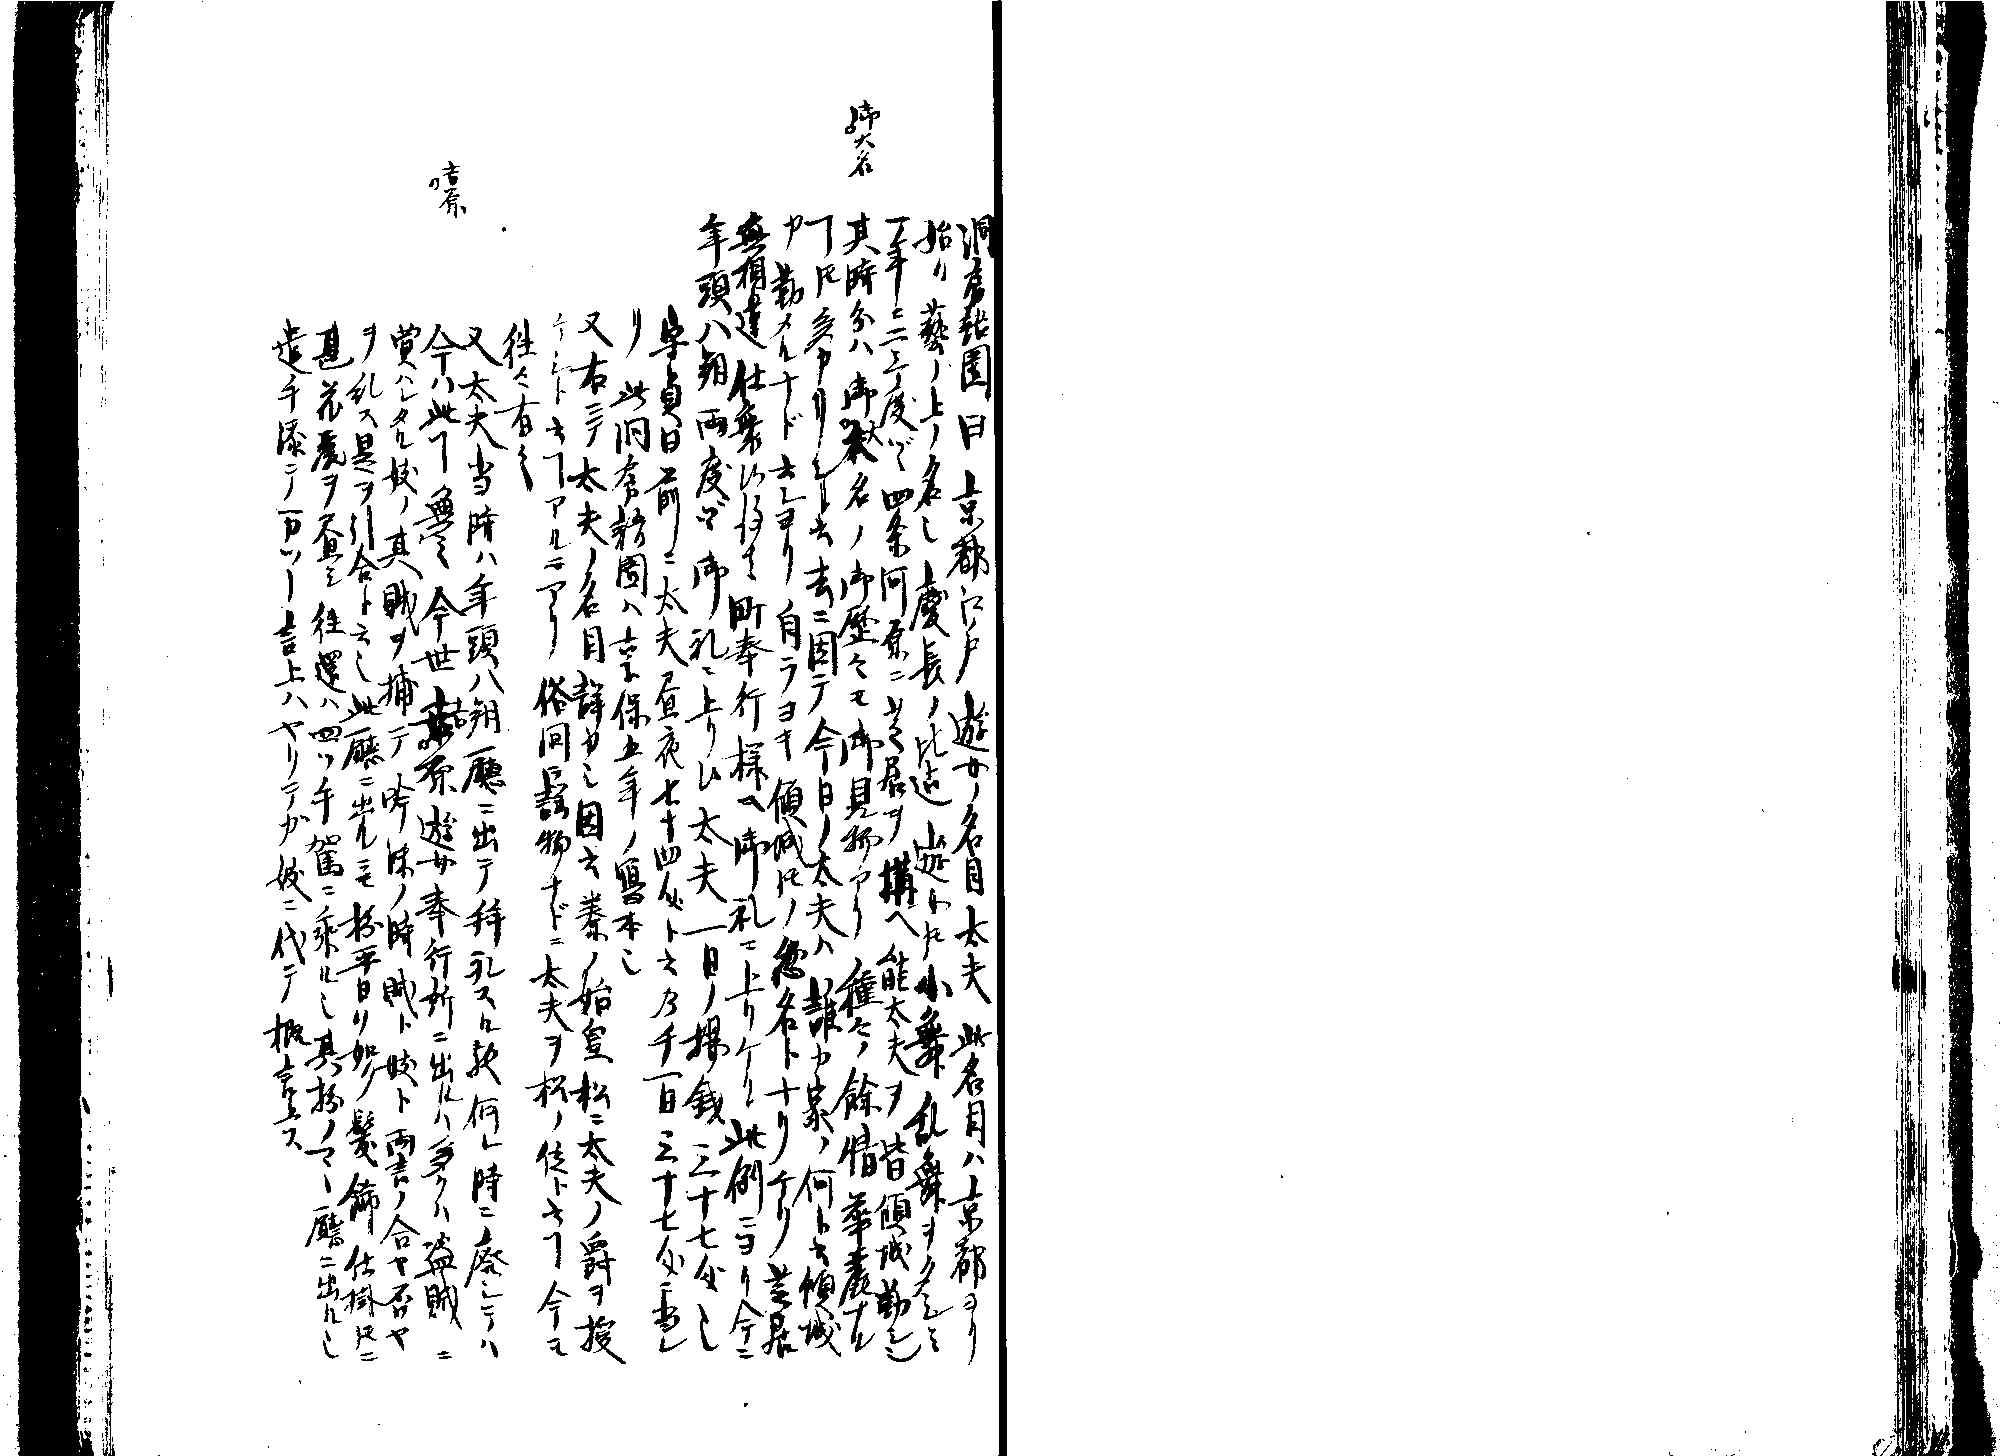 洞房語園曰京都江戸遊女ノ名目太夫此名目ハ京都ヨリ
始リ藝ノ上ノ名也慶長ノ比迄遊女共小舞乱舞ヲタシミ
一年ニ二三度ヅヽ四条河原ニ芝居ヲ構ヘ能太夫ヲ皆傾城勤シ也
御大名
其時分ハ御大名ノ御歴々モ御見物アリ種々ノ餘情華麗ナル
ヿ共多カリシト云去ニ因テ今日ノ太夫ハ誰カ家ノ何ト云傾城
カ勤メルナド云シヨリ自ラヨキ傾城共ノ惣名トナリケリ芝居
無相違仕舞候得ハ町奉行様ヘ御礼ニ上リケリ此例ニヨリ今ニ
年頭八朔両度ヅヽ御礼ニ上リ候太夫一日ノ揚銭三十七匁也
字貢曰前ニ太夫昼夜七十四匁ト云乃千百三十七匁ニ当レ
リ此洞房語園ハ享保五年ノ寫本也
又右ニテ太夫ノ名目詳カ也因云秦ノ始皇松ニ太夫ノ爵ヲ授
ケシト云ヿアルニヨリ俗間謡物ナドニ太夫ヲ松ノ位ト云ヿ今モ
往々有之
又太夫当時ハ年頭八朔廳ニ出テ拜礼スル歟何レ時ニカ廃シテハ
吉原ノ嗅
今ハ此ヿ無シ今世吉原遊女奉行所ニ出ルハ多クハ盗賊ニ
買ハレタル妓ノ其賊ヲ捕テ吟味ノ時賊ト妓ト両言ノ合ヤ否ヤ
ヲ乱ス是ヲ引合ト云也此廳ニ出ルモ扮平日ノ如ク髪飾仕掛共ニ
甚花麗ヲ尽シ往還ハ四ツ手駕ニ乗ル也其扮ノマヽ廳ニ出ル也
遣手添テ一切ノ言上ハヤリテカ妓ニ代テ概言上ス